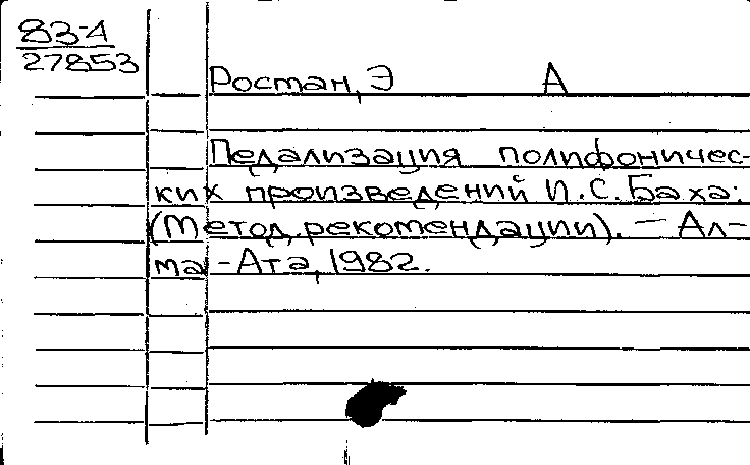 83-4
27853
Ростан, Э А
Педализация полифоничес-
ких произведений И.С. Баха:
(Метод. рекомендации). — Ал-
ма-Ата, 1982.